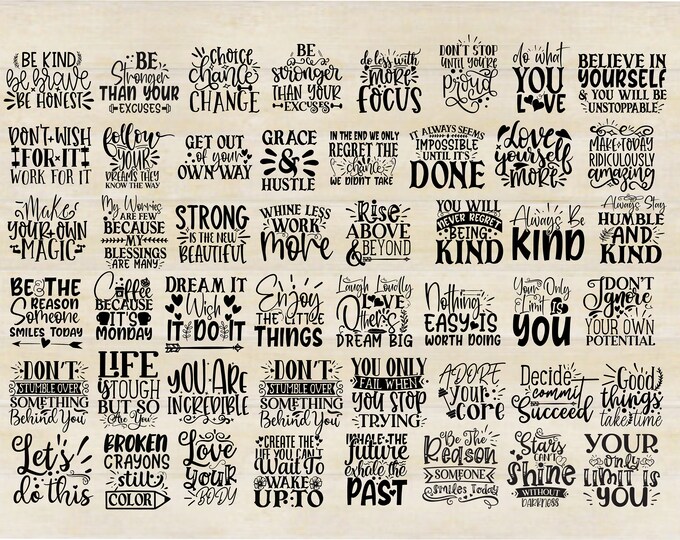 BE KIND
be brave
BE HONEST
BE
Stronger
THAN YOUR
EXCUSES
choice
chance
CHANGE
BE
stronger
THAN YOUR
EXCUSES
do less with
MORE
FOCUS
DON'T STOP
UNTIL YOU'RE
Proud
do what
YOU
LOVE
BELIEVE IN
YOURSELF
& YOU WILL BE
UNSTOPPABLE
DON'T WISH
FOR IT
WORK FOR IT
follow
YOUR
DREAMS THEY
KNOW THE WAY
GET OUT
of your
OWN WAY
GRACE
&
HUSTLE
IN THE END WE ONLY
REGRET THE
chance
WE DIDN'T TAKE
IT ALWAYS SEEMS
IMPOSSIBLE
UNTIL IT'S
DONE
Love
yourself
MORE
MAKE TODAY
RIDICULOUSLY
amazing
Make
YOUR OWN
MAGIC
My Worries
ARE FEW
BECAUSE
MY
BLESSINGS
ARE MANY
STRONG
IS THE NEW
BEAUTIFUL
WHINE LESS
WORK
More
Rise
ABOVE
& BEYOND
YOU WILL
NEVER REGRET
BEING
KIND
Always Be
KIND
Always Stay
HUMBLE
AND
KIND
BE THE
REASON
Someone
SMILES TODAY
Coffee
BECAUSE
IT'S
MONDAY
DREAM IT
Wish
IT DO IT
Enjoy
THE LITTLE
THINGS
Laugh Loudly
LOVE
Others
DREAM BIG
Nothing
EASY IS
WORTH DOING
Your Only
Limit Is
YOU
DON'T
Ignore
YOUR OWN
POTENTIAL
DON'T
STUMBLE OVER
SOMETHING
Behind You
LIFE
IS TOUGH
BUT SO
Are You
YOU ARE
INCREDIBLE
DON'T
STUMBLE OVER
SOMETHING
Behind You
YOU ONLY
FAIL WHEN
YOU STOP
TRYING
ADORE
your
core
Decide
commit
Succeed
Good
things
take time
Let's
do this
BROKEN
CRAYONS
still
COLOR
Love
YOUR
BODY
CREATE THE
LIFE YOU CAN'T
Wait To
WAKE
UP TO
INHALE THE
Future
exhale the
PAST
Be The
Reason
SOMEONE
Smiles Today
Stars
CAN'T
Shine
WITHOUT
DARKNESS
YOUR
only
LIMIT IS
YOU